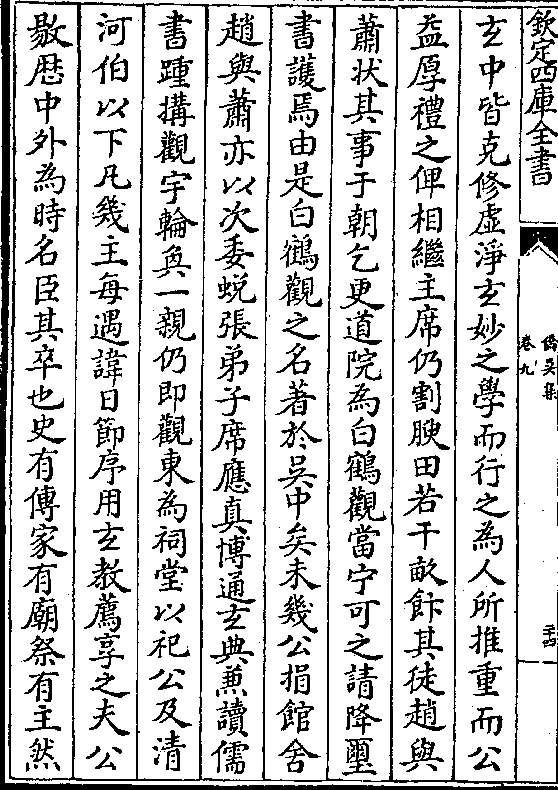 欽定四庫全書
僑吳集
卷九
二十四
玄中皆克修虛淨玄妙之學而行之為人所推重而公
益厚禮之俾相繼主席仍割腴田若干畝飰其徒趙與
蕭状其事于朝乞更道院為白鶴觀當宁可之請降璽
書護焉由是白鶴觀之名著於吳中矣未幾公捐館舍
趙與蕭亦以次委蛻張弟子席應真博通玄典兼讀儒
書踵搆觀宇輪奐一親仍即觀東為祠堂以祀公及清
河伯以下凡幾主每遇諱日節序用玄教薦享之夫公
敭歴中外為時名臣其卒也史有傳家有廟祭有主然